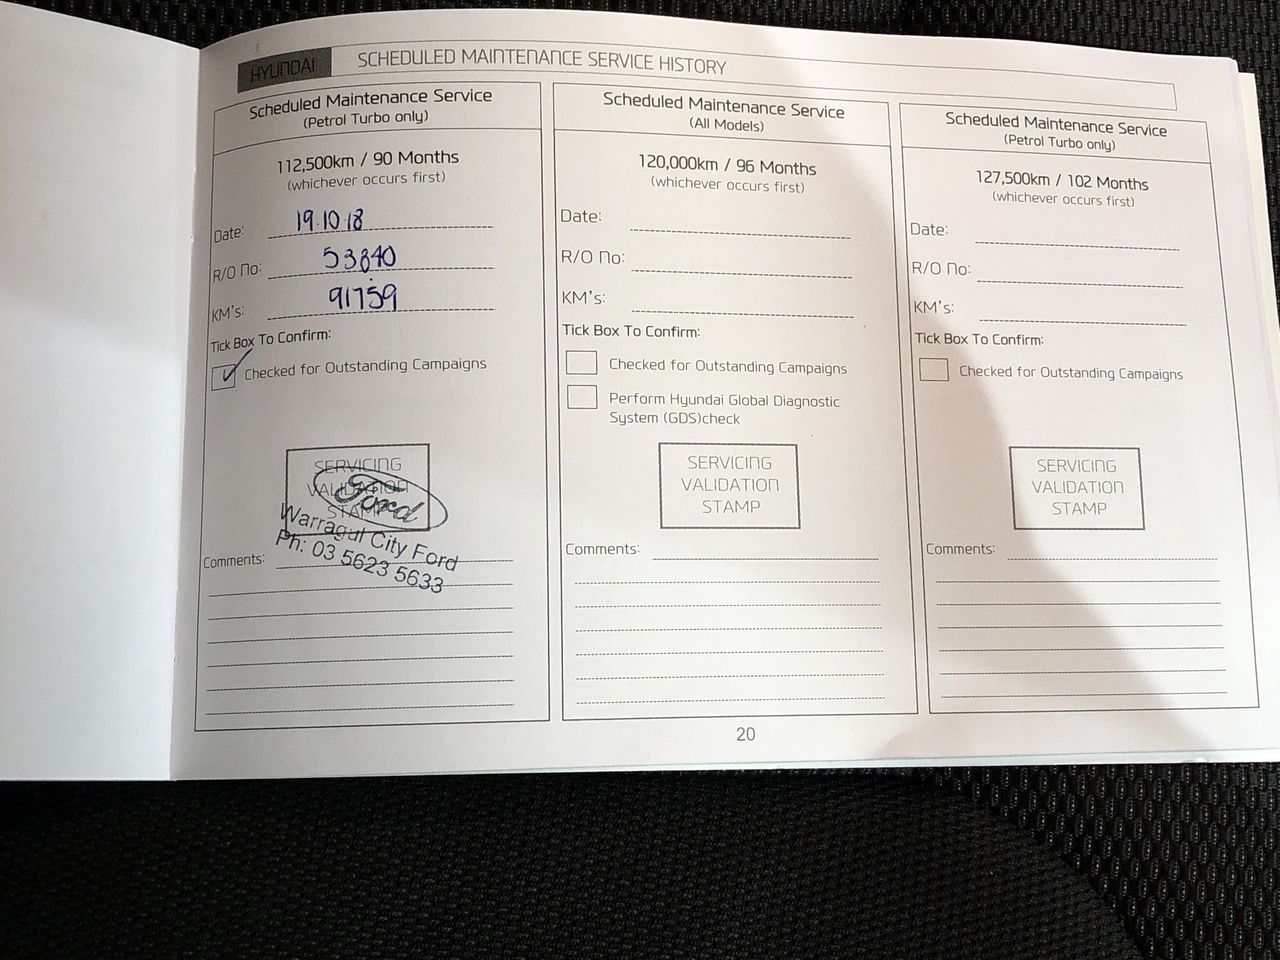 HYUNDAI
SCHEDULED MAINTENANCE SERVICE HISTORY
Scheduled Maintenance Service
(Petrol Turbo only)
112,500km / 90 Months
(whichever occurs first)
Date: 19.10.18
R/O No: 53840
KM's: 91759
Tick Box To Confirm:
Checked for Outstanding Campaigns
SERVICING
VALIDATION
STAMP
Ford
Warragul City Ford
Ph: 03 5623 5633
Comments:
Scheduled Maintenance Service
(All Models)
120,000km / 96 Months
(whichever occurs first)
Date:
R/O No:
KM's:
Tick Box To Confirm:
Checked for Outstanding Campaigns
Perform Hyundai Global Diagnostic
System (GDS)check
SERVICING
VALIDATION
STAMP
Comments:
Scheduled Maintenance Service
(Petrol Turbo only)
127,500km / 102 Months
(whichever occurs first)
Date:
R/O No:
KM's:
Tick Box To Confirm:
Checked for Outstanding Campaigns
SERVICING
VALIDATION
STAMP
Comments:
20